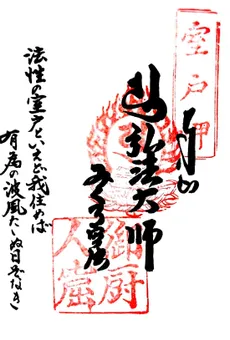 室戸岬
弘法大師
法性の室戸といえど我住めば
有為の波風たゝぬ日ぞなき
御厨
人窟